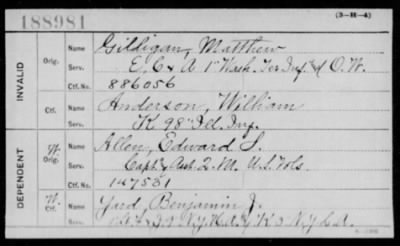 188981
(3-H-4)
INVALID
Orig.
Name Gilligan, Matthew
Serv. E, C & A 1" Wash. Ter Inf. & O. W.
Ctf. No. 886056
Ctf.
Name Anderson, William
Serv. K 98" Ill. Inf.
DEPENDENT
W. Orig.
Name Allen, Edward S.
Serv. Capt & Asst Q. M. U.S. Vols.
Ctf. No. 147551
W. Ctf.
Name Yard, Benjamin J.
Serv. N.Y. H.A. & K 3 N.Y. L.A.